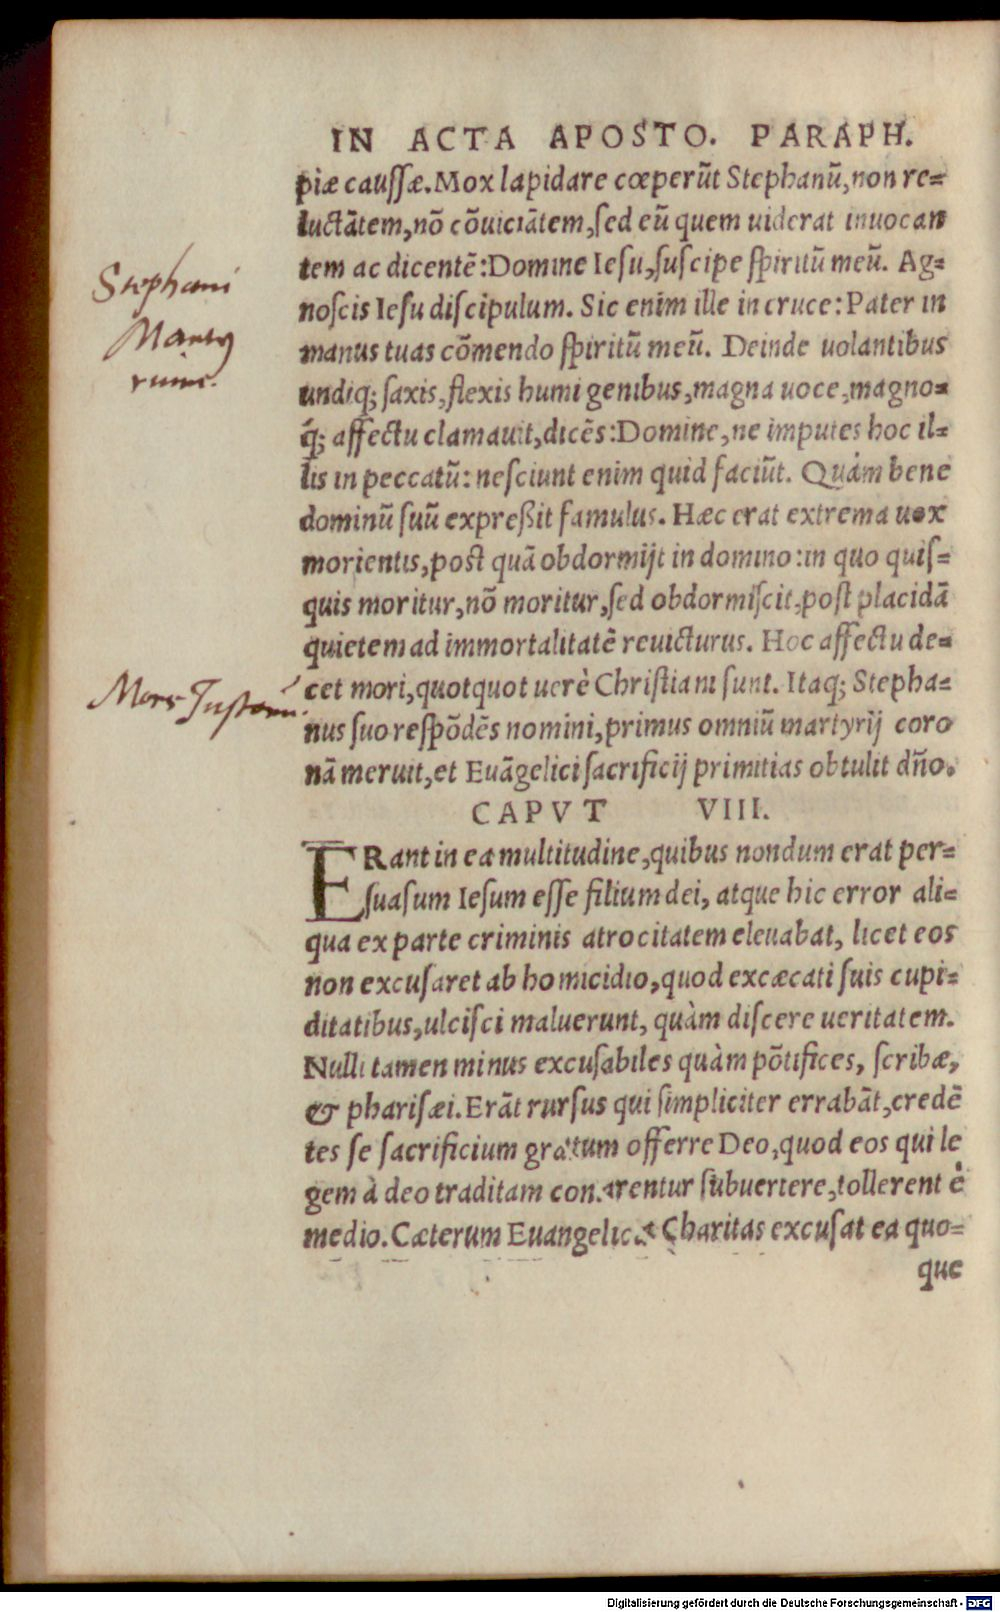 IN ACTA APOSTO. PARAPH.
piæ caussæ. Mox lapidare cœperũt Stephanũ, non re=
luctãtem, nõ cõuiciãtem, sed eũ quem uiderat inuocan
tem ac dicentẽ: Domine Iesu, suscipe spiritũ meũ. Ag=
noscis Iesu discipulum. Sic enim ille in cruce: Pater in
manus tuas cõmendo spiritũ meũ. Deinde uolantibus
undiq; saxis, flexis humi genibus, magna uoce, magno=
q́; affectu clamauit, dicẽs: Domine, ne imputes hoc il=
lis in peccatũ: nesciunt enim quid faciũt. Quàm bene
dominũ suũ expreßit famulus. Hæc erat extrema uox
morientis, post quã obdormijt in domino: in quo quis=
quis moritur, nõ moritur, sed obdormiscit, post placidã
quietem ad immortalitatẽ reuicturus. Hoc affectu de=
cet mori, quotquot uerè Christiani sunt. Itaq; Stepha=
nus suo respõdẽs nomini, primus omniũ martyrij coro
nã meruit, et Euãgelici sacrificij primitias obtulit dño.
Stephani
Marty
rium.
Mors Justorum.
CAPVT VIII.
ERant in ea multitudine, quibus nondum erat per=
suasum Iesum esse filium dei, atque hic error ali=
qua ex parte criminis atrocitatem eleuabat, licet eos
non excusaret ab homicidio, quod excæcati suis cupi=
ditatibus, ulcisci maluerunt, quàm discere ueritatem.
Nulli tamen minus excusabiles quàm põtifices, scribæ,
& pharisæi. Erãt rursus qui simpliciter errabãt, credẽ
tes se sacrificium gratum offerre Deo, quod eos qui le
gem à deo traditam conarentur subuertere, tollerent è
medio. Cæterum Euangelica Charitas excusat ea quo=
que
Digitalisierung gefördert durch die Deutsche Forschungsgemeinschaft - DFG